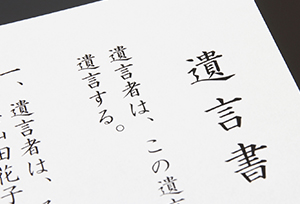 遺言書
遺言者は、この遺言
遺言する。
一、遺言者は、
山田花子